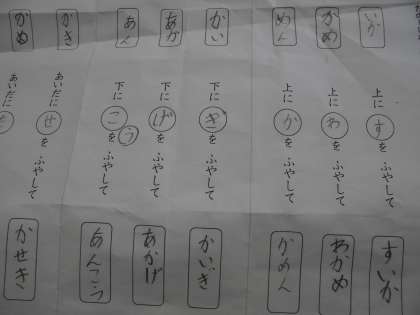 いか
上に す を ふやして
すいか
かめ
上に わ を ふやして
わかめ
めん
上に か を ふやして
かめん
かい
下に ぎ を ふやして
かいぎ
あか
下に げ を ふやして
あかげ
あん
下に こ う を ふやして
あんこう
かき
あいだに せ を ふやして
かせき
かめ
あいだに